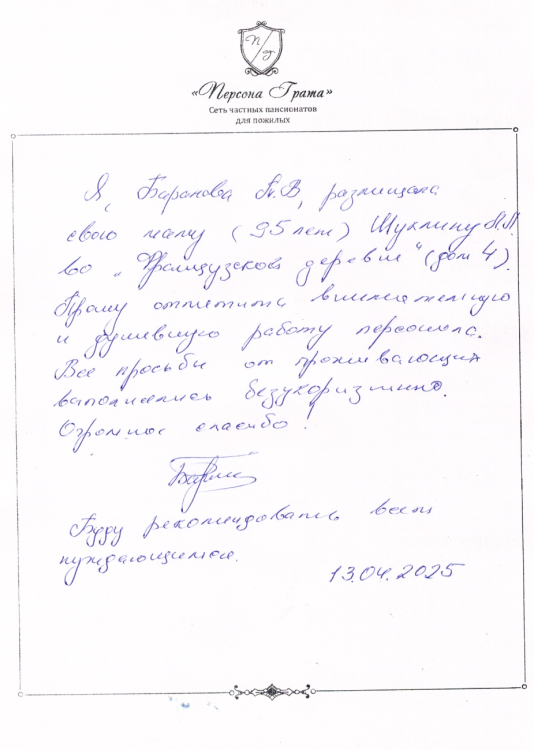 П/Г
«Персона Грата»
Сеть частных пансионатов
для пожилых
Я, Баранова М.В, размещала
свою маму (95 лет) Щуклину М.П.
во „Французской деревне" (дом 4).
Прошу отметить внимательную
и душевную работу персонала.
Все просьбы от проживающих
выполнялись безукоризненно.
Огромное спасибо!
Буду рекомендовать всем
нуждающимся.
13.04.2025